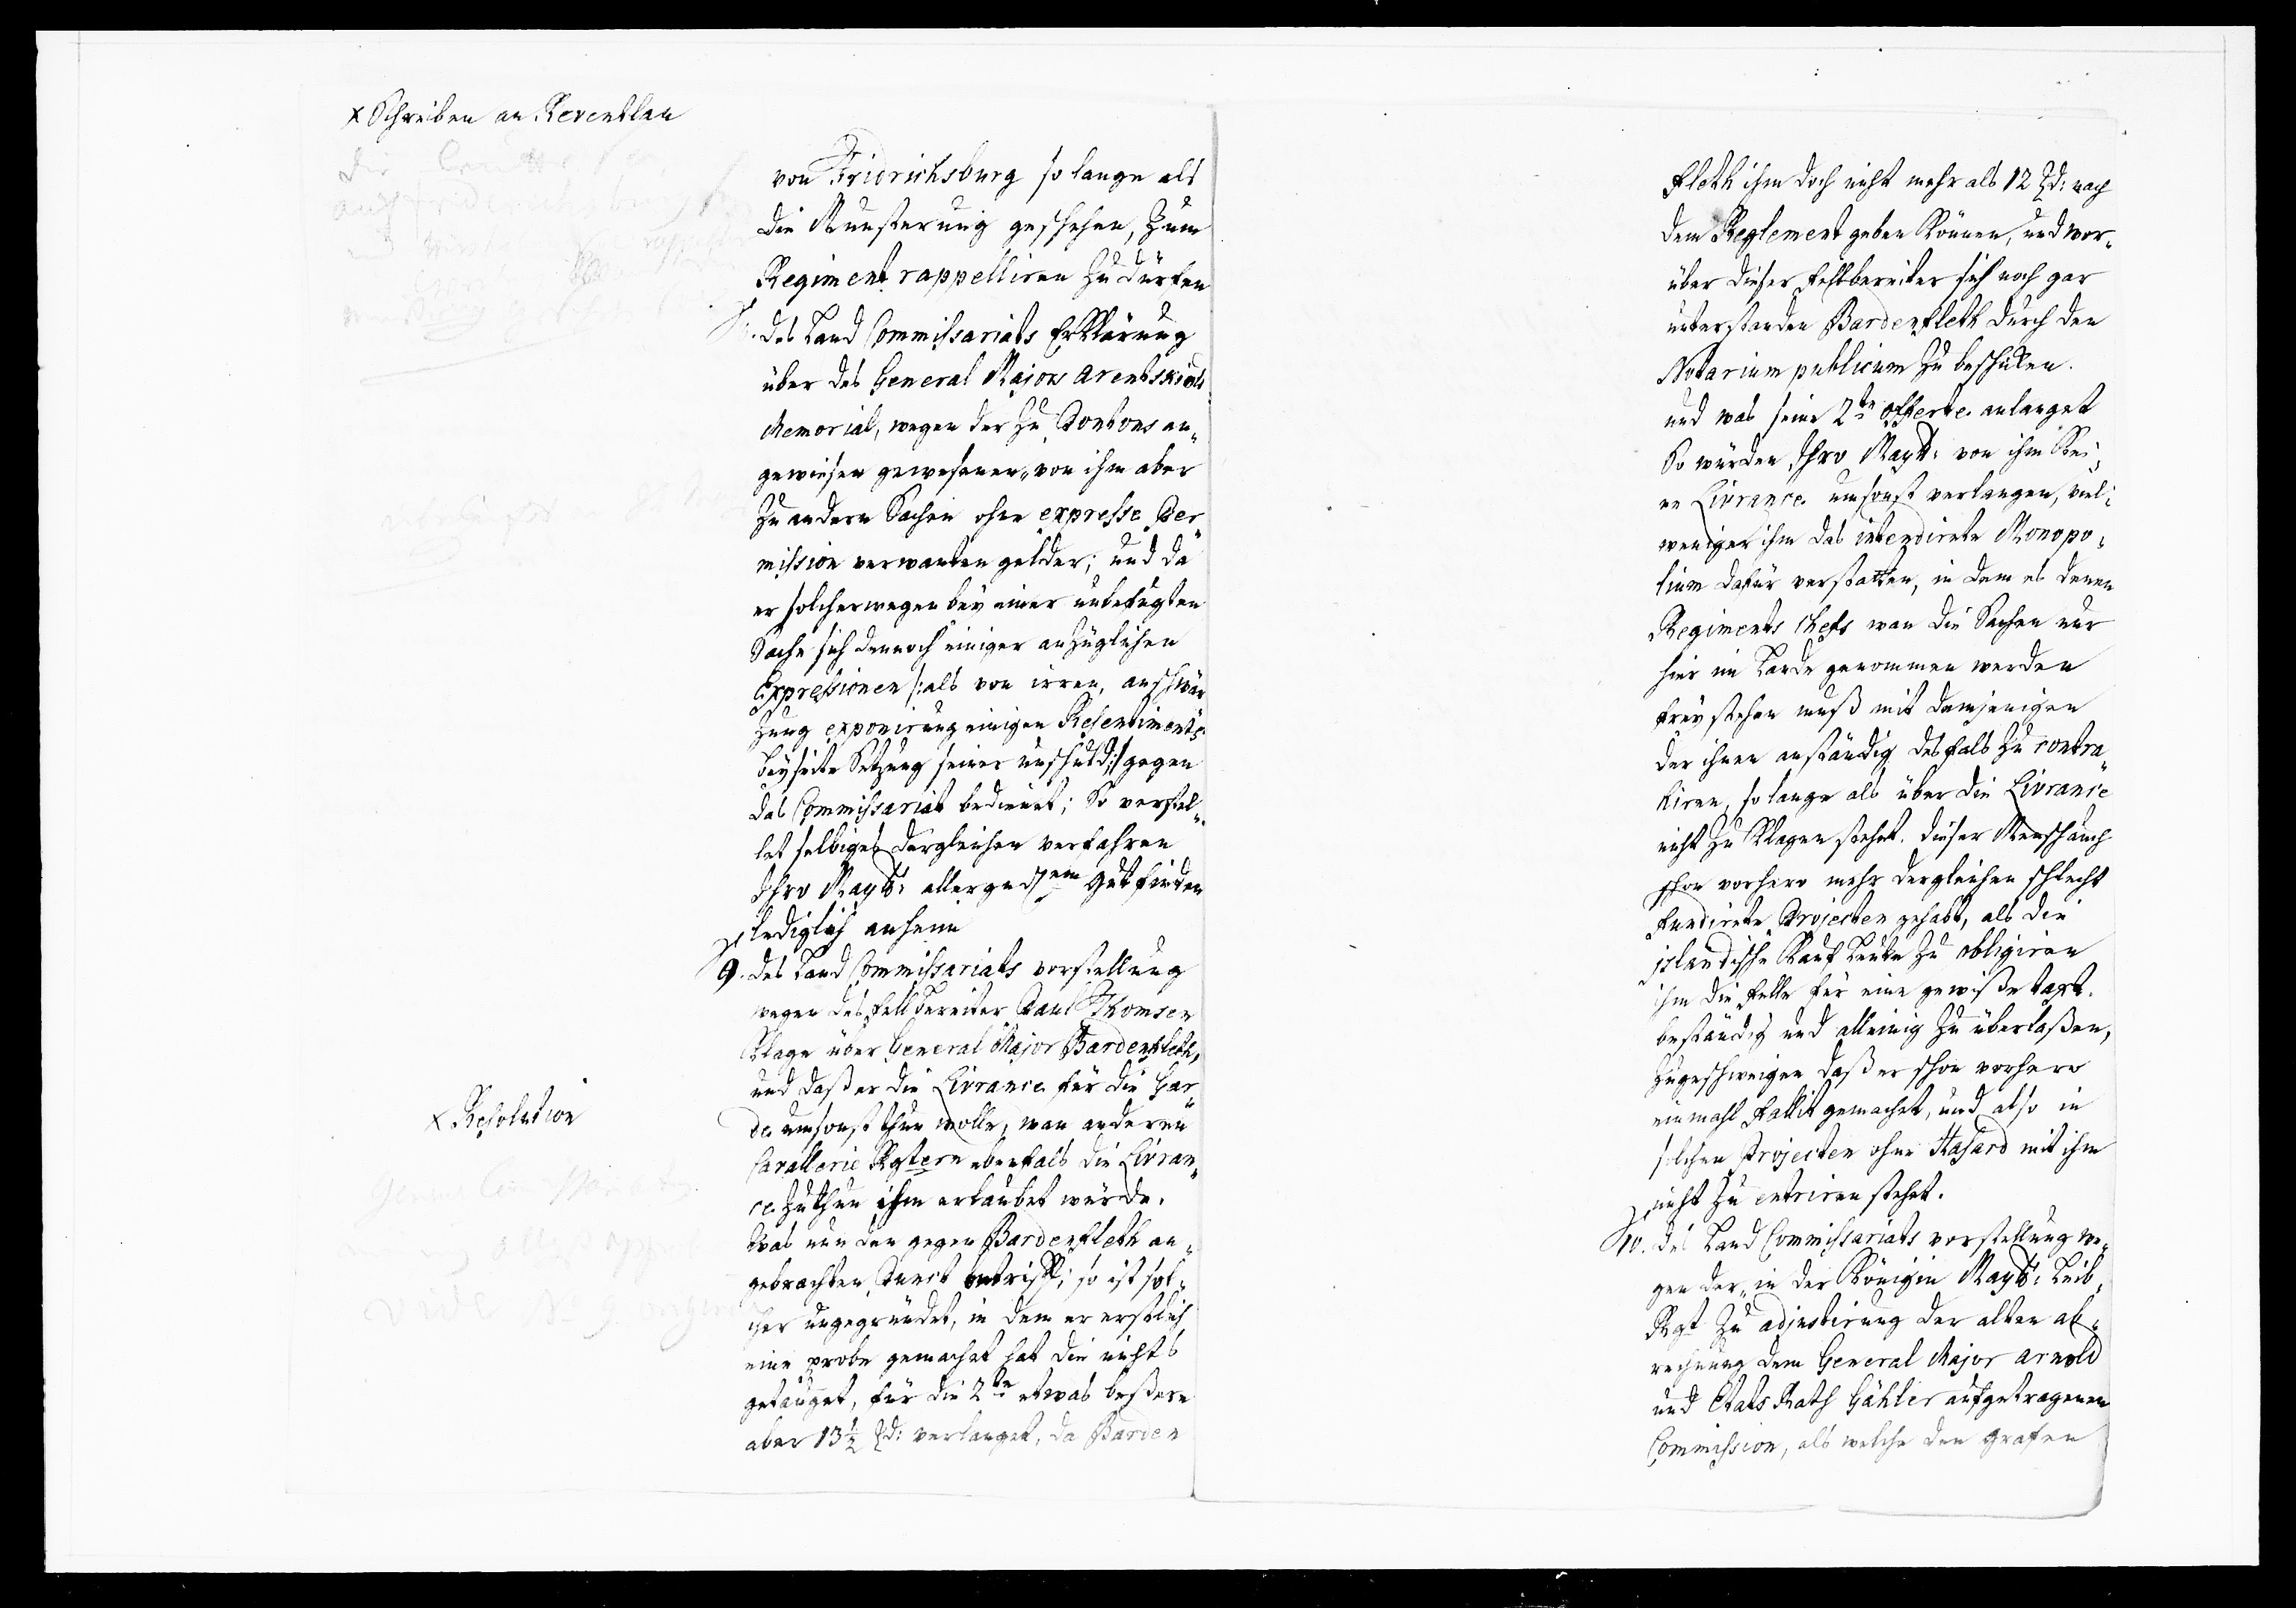 x Schreiben an Reventlau
von Fridrichsburg so lange als
die Munsterung geschehen, zum
Regiment rappelliren zu dürfen
des Land Commissariats Erklärung
über des General Majors Arentskiolds
Memorial, wegen der zu Pontons an„
gewiesen gewesenen, von ihm aber
zu andern Sachen ohne expresse Per„
mission verwanten gelder; und da
er solcherwegen bey einer unbefugten
Sache sich dennoch einiger anzüglichen
Expressionen /: als von irren, anschwär
zung exponirung einigen Resentiments
beyseite Setzung seiner unschuld :/ gegen
das Commissariat bedienet; So verstel„
let selbiges dergleichen verfahren
Ihro Maytt: allergndstem gutfinden
lediglich anheim
9. des Land Commissariats vorstellung
wegen des Fellbereiter Paul Thomsen
Klage über General Major Bardenfleth,
und daß er die Livrance für die Gar„
de umsonst thun wolle, wan anderen
Cavallerie Rgtern ebenfals die Livran„
ce zuthun ihm erlaubet würde.
Was nun den gegen Bardenfleth an„
gebrachten Punct betrifft; so ist sol„
cher ungegründet, in dem er erstlich
eine probe gemachet hat die nichts
getauget, für die 2te etwas beßere
aber 13½ ßd: verlanget, da Barden
x Resolution
fleth ihm doch nicht mehr als 12 ßd: nach
dem Reglement geben können, und wor„
über dieser Fellbereiter sich noch gar
unterstanden Bardenfleth durch den
Notarium publicum zu beschicken.
und was seine 2te offerte anlanget
So würden Ihro Maytt: von ihm kei„
ne Livrance umsonst verlangen, viel„
weniger ihm das intendirete Monopo„
lium dafür verstatten, in dem es denen
Regiments Chefs wan die Sachen nur
hier im Lande genommen werden
frey stehen muß mit demjenigen
der ihnen anständig desfals zu contra„
hiren, so lange als über die Livrance
nicht zu klagen stehet. dieser Mensch auch
schon vorhero mehr dergleichen schlecht
fundirete Projecten gehabt, als die
islandische Kauf Leute zu obligiren
ihm die Felle für eine gewiße taxt.
beständig und alleinig zu überlaßen,
zugeschweigen daß er schon vorhero
ein mahl fallit gemachet, und also in
solchen Projecten ohne Hasard mit ihm
nicht zu entriren stehet.
10. des Land Commissariats vorstellung we„
gen der, in der Königin Maytt: Leib„
Rgt zu adjustirung der alten ab„
rechnung dem General Major Arnold
und Etats Rath Gähler aufgetragenen
Commission, als welche den Grafen